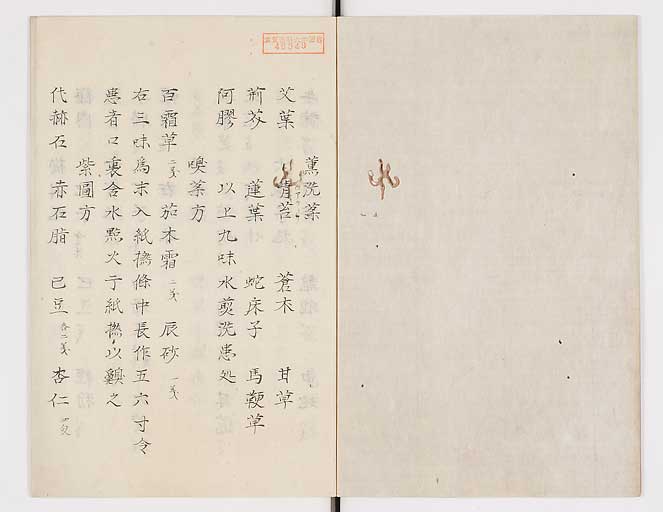 薫洗薬
艾葉 青苔 蒼朮 甘草
荊芥 蓮葉 蛇床子 馬鞭草
阿膠 以上九味水煎洗患処
嗅薬方
百霜草二戔 茄木霜二戔 辰砂一戔
右三味為末入紙撚條中長作五六寸令
患者口裏含水點火于紙撚以齅之
紫圓方
代赭石 赤石脂 巳豆各二戔 杏仁
48940